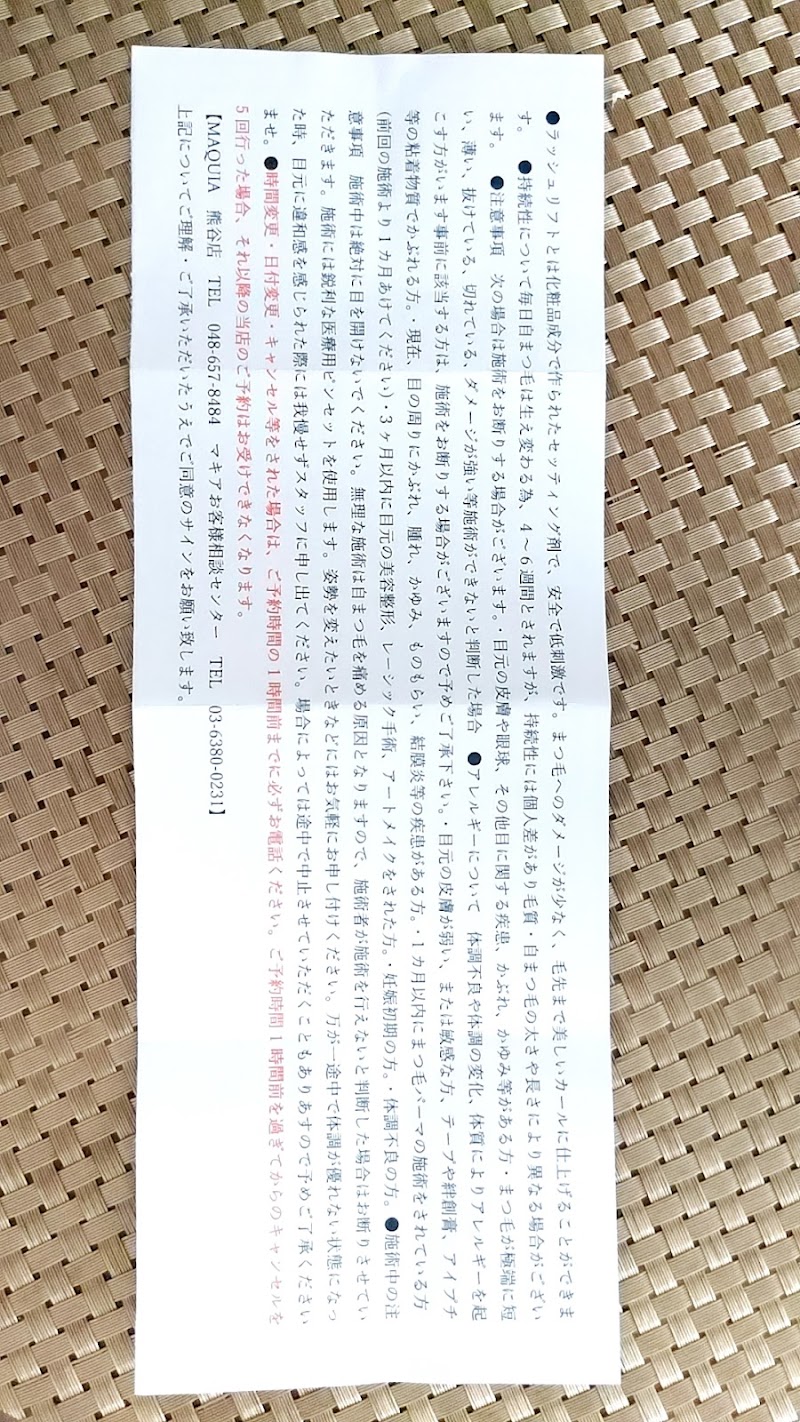 ●ラッシュリフトとは化粧品成分で作られたセッティング剤で、安全で低刺激です。まつ毛へのダメージが少なく、毛先まで美しいカールに仕上げることができま
す。 ●持続性について毎日自まつ毛は生え変わる為、4～6週間とされますが、持続性には個人差があり毛質・自まつ毛の太さや長さにより異なる場合がござい
ます。 ●注意事項 次の場合は施術をお断りする場合がございます。・目元の皮膚や眼球、その他目に関する疾患、かぶれ、かゆみ等がある方・まつ毛が極端に短
い、薄い、抜けている、切れている、ダメージが強い等施術ができないと判断した場合 ●アレルギーについて 体調不良や体調の変化、体質によりアレルギーを起
こす方がいます事前に該当する方は、施術をお断りする場合がございますので予めご了承下さい。・目元の皮膚が弱い、または敏感な方、テープや絆創膏、アイプチ
等の粘着物質でかぶれる方。・現在、目の周りにかぶれ、腫れ、かゆみ、ものもらい、結膜炎等の疾患がある方。・1カ月以内にまつ毛パーマの施術をされている方
(前回の施術より1カ月あけてください)・3ヶ月以内に目元の美容整形、レーシック手術、アートメイクをされた方。・妊娠初期の方。・体調不良の方。●施術中の注
意事項 施術中は絶対に目を開けないでください。無理な施術は自まつ毛を痛める原因となりますので、施術者が施術を行えないと判断した場合はお断りさせてい
ただきます。施術には鋭利な医療用ピンセットを使用します。姿勢を変えたいときなどにはお気軽にお申し付けください。万が一途中で体調が優れない状態になっ
た時、目元に違和感を感じられた際には我慢せずスタッフに申し出てください。場合によっては途中で中止させていただくこともありあすので予めご了承ください
ませ。●時間変更・日付変更・キャンセル等をされた場合は、ご予約時間の1時間前までに必ずお電話ください。ご予約時間1時間前を過ぎてからのキャンセルを
5回行った場合、それ以降の当店のご予約はお受けできなくなります。
【MAQUIA 熊谷店 TEL 048-657-8484 マキアお客様相談センター TEL 03-6380-0231】
上記についてご理解・ご了承いただいたうえでご同意のサインをお願い致します。